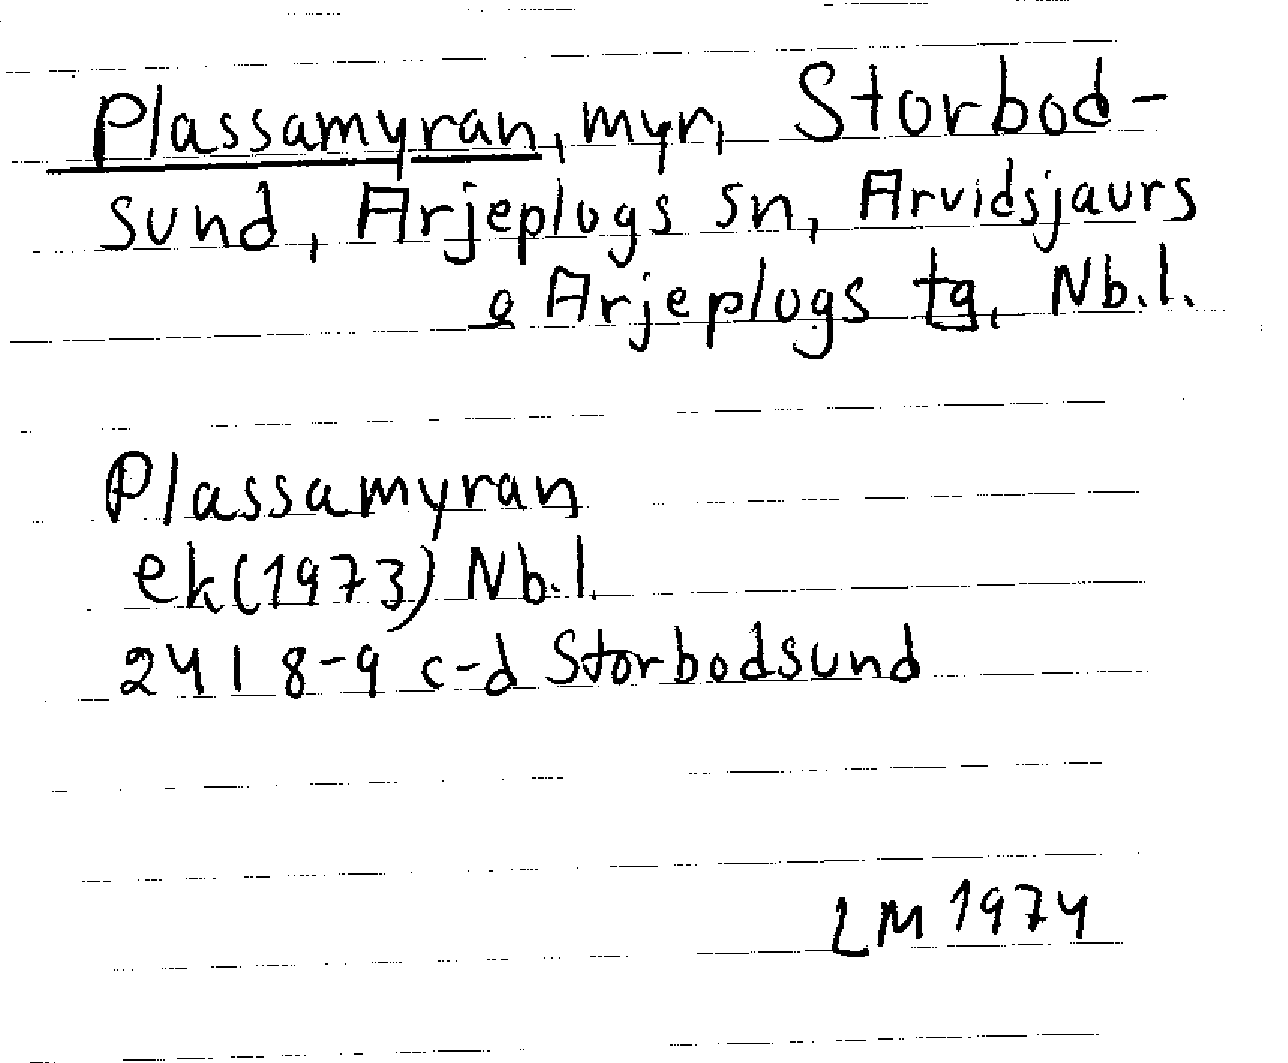 Plassamyran, myr, Storbod-
sund, Arjeplogs sn, Arvidsjaurs
o Arjeplogs tg, Nb.l.
Plassamyran
ek(1973) Nb.l.
241 8-9 c-d Storbodsund
LM 1974